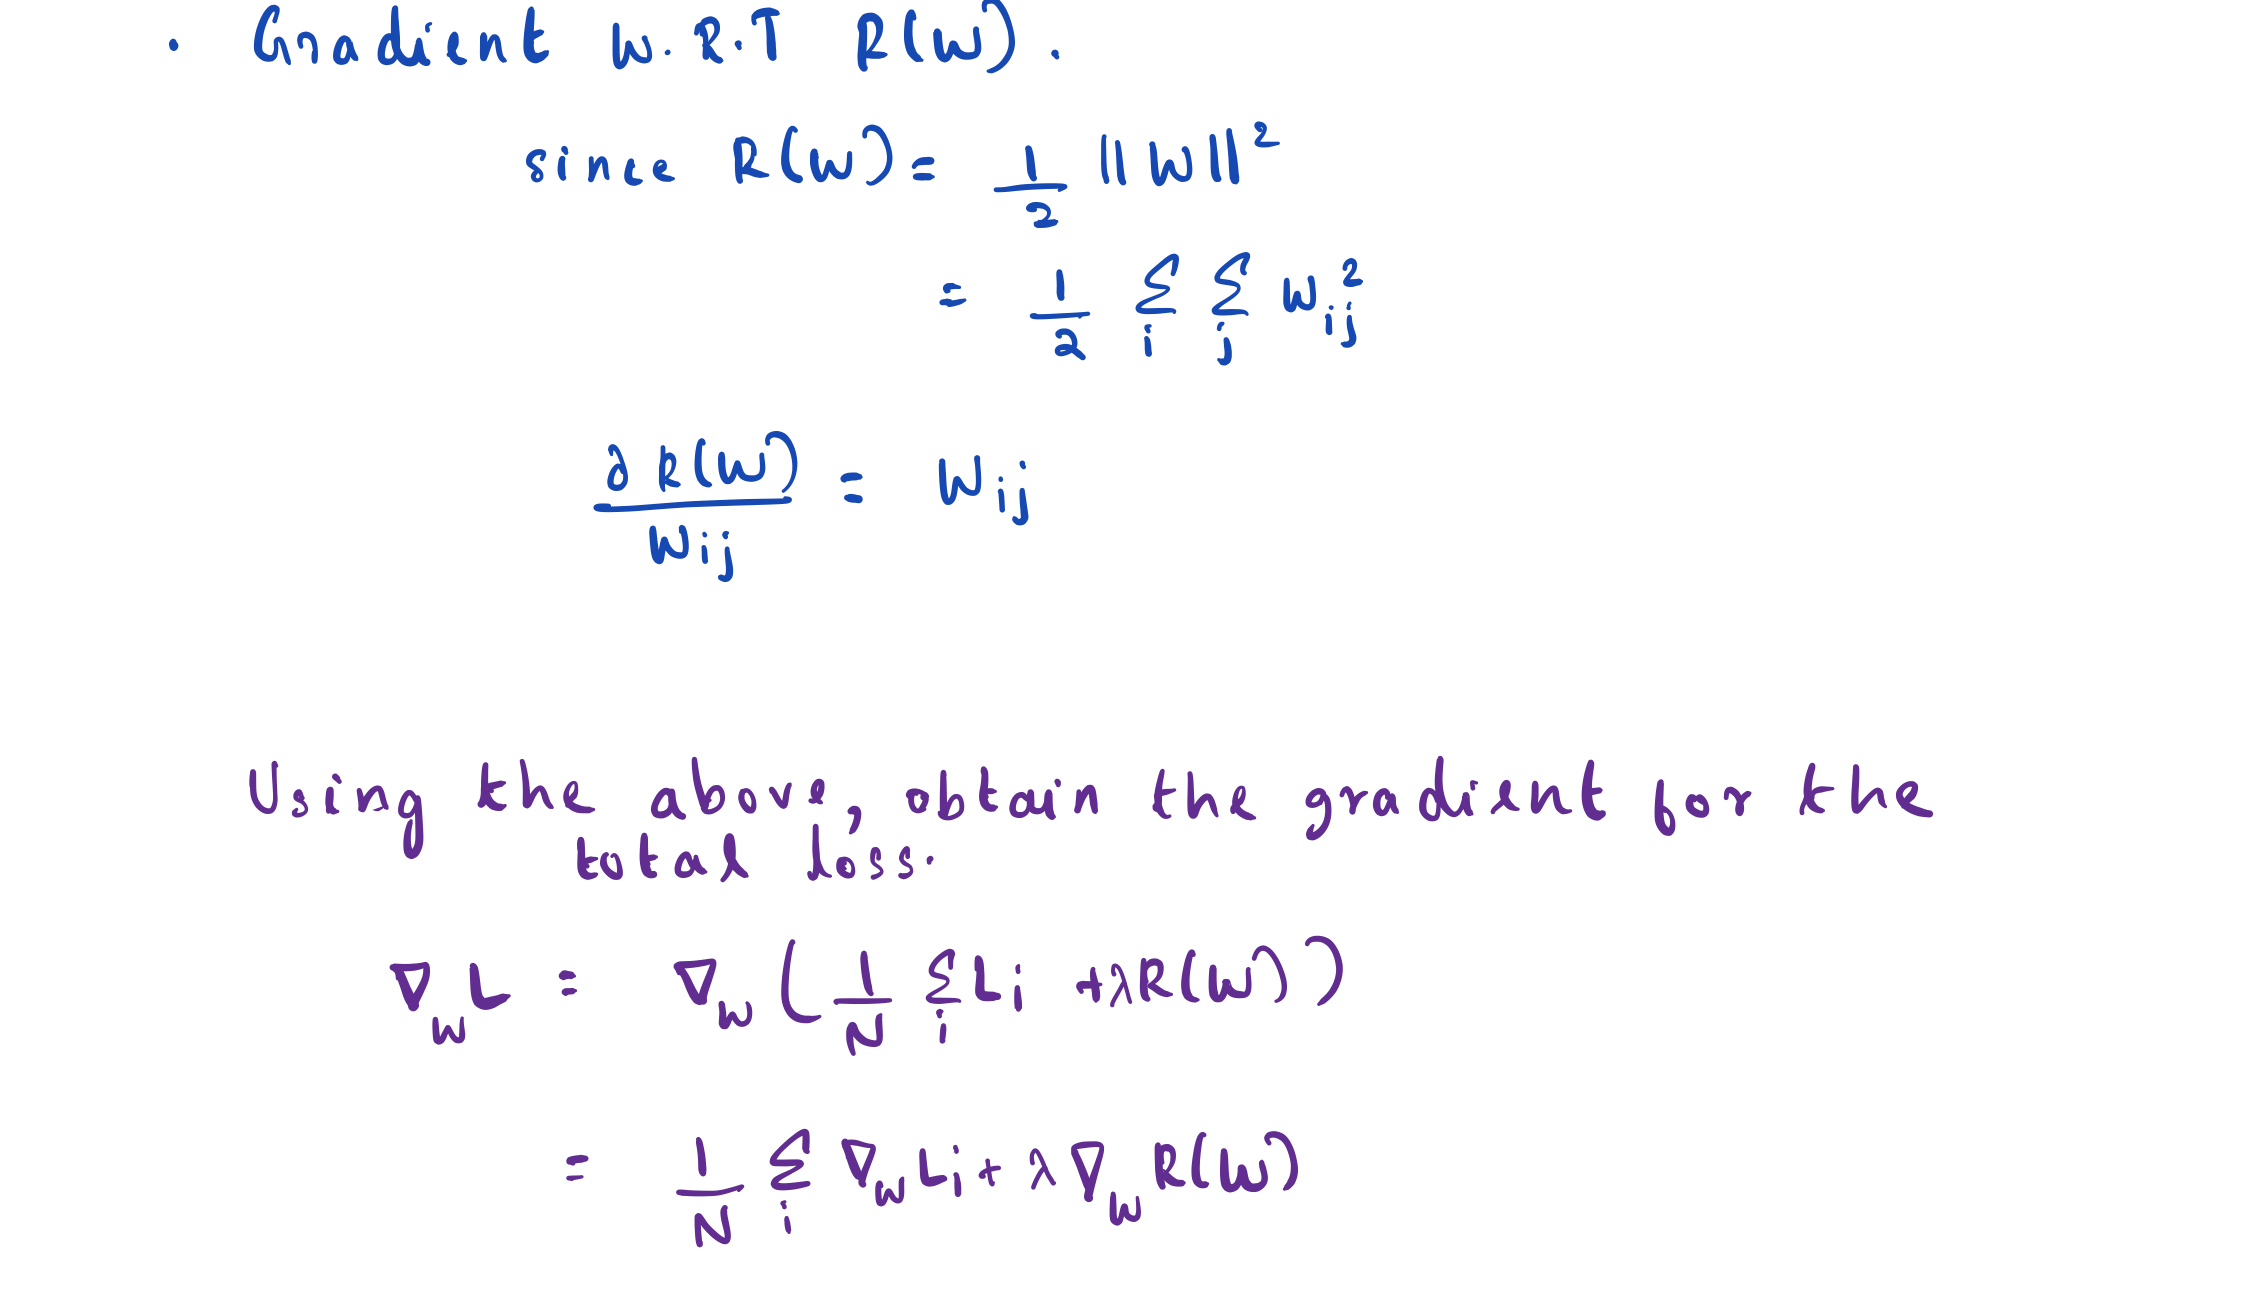 · Gradient W.R.T R(W).
since R(W) = 1/2 ||W||²
= 1/2 Σ_i Σ_j W_ij²
∂R(W)/W_ij = W_ij
Using the above, obtain the gradient for the
total loss.
∇_W L = ∇_W (1/N Σ_i L_i + λR(W))
= 1/N Σ_i ∇_W L_i + λ∇_W R(W)